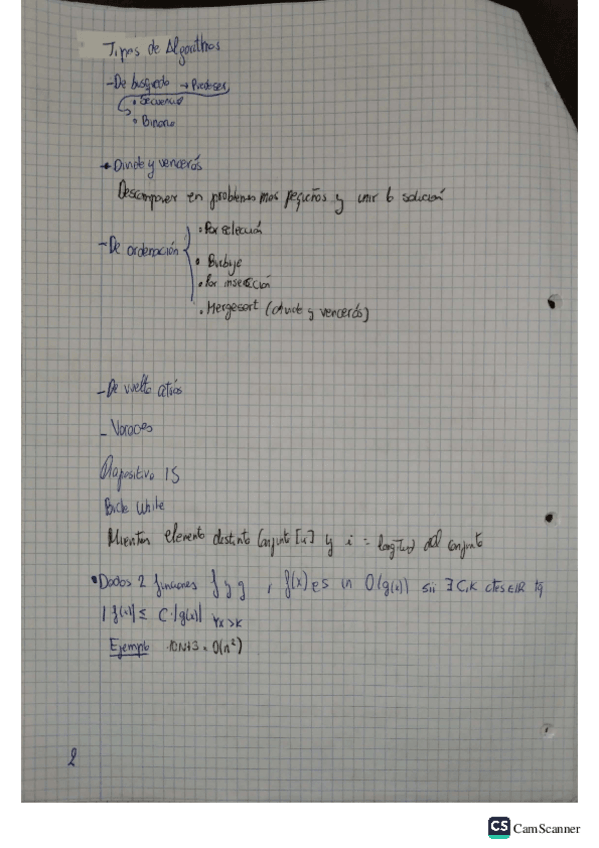 Tipos de Algoritmos
- De busqueda →
• Secuencial
• Binario
- Divide y vencerás
Descomponer en problemas mas pequeños y unir la solución
- De ordenación
• Por selección
• Burbuja
• Por inserción
• Mergesort (divide y vencerás)
- De vuelta atrás
- Voraces
Diapositiva 15
Bucle While
Mientras elemento distinto Conjunto [i] y i = longitud del conjunto
• Dados 2 funciones f y g, f(x) es in O(g(x)) sii ∃ C, K ctes ∈ IR tq
|f(x)| ≤ C·|g(x)| ∀x>k
Ejemplo O(n²)
2
CS CamScanner